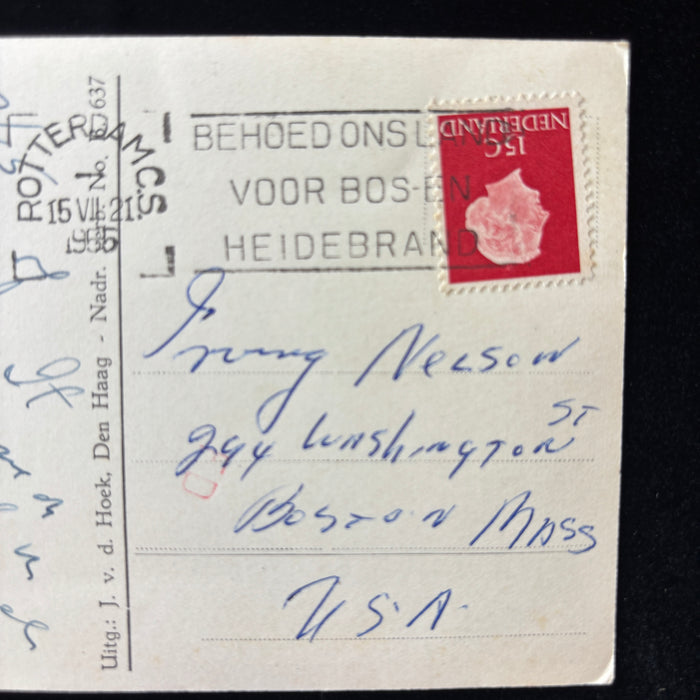 ROTTERDAM C.S.
15 VII 21
BEHOED ONS LAND
VOOR BOS-EN
HEIDEBRAND
NEDERLAND
15C
Irving Nelson
294 Washington ST
Boston Mass
U.S.A.
Uitg.: J. v. d. Hoek, Den Haag - Nadr. verb. No. B 637